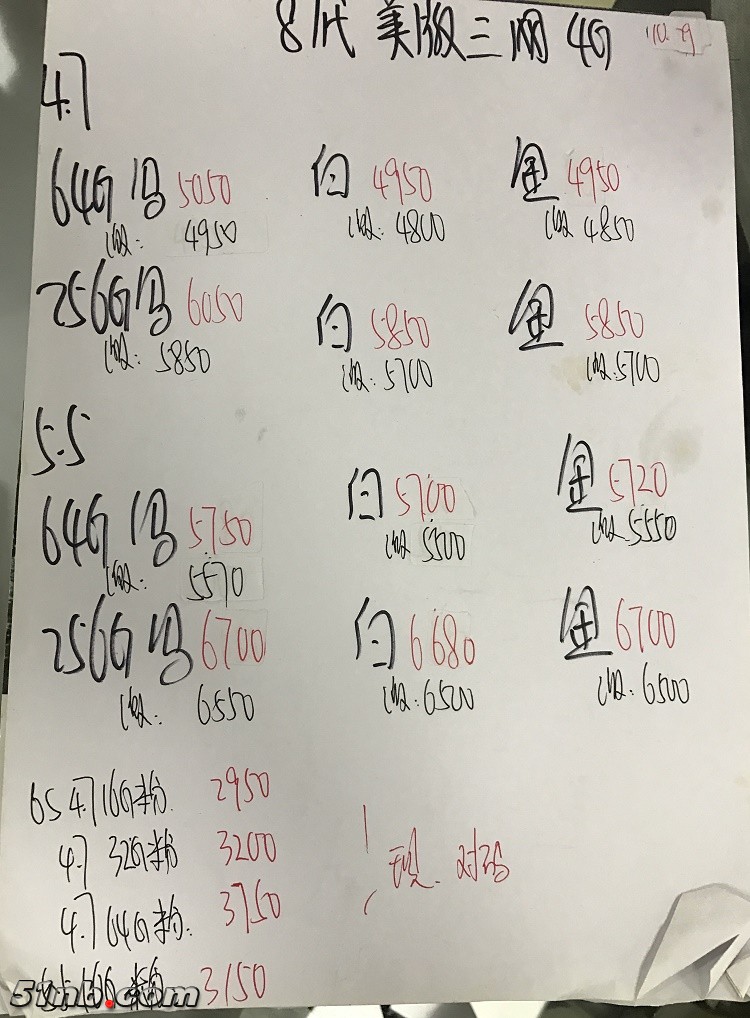 8代 美版三网 4G 10.29
4.7
64G 黑 5050 白 4950 金 4950
假: 4950 假: 4800 假 4850
256G 黑 6050 白 5850 金 5850
假: 5850 假: 5700 假: 5700
5.5
64G 黑 5750 白 5700 金 5720
假: 5570 假 5500 假 5550
256G 黑 6700 白 6680 金 6700
假: 6550 假: 6500 假: 6500
6S 4.7 16G粉. 2950
4.7 32G粉 3200
4.7 64G粉. 3750
16G 粉 3150
51nb.com